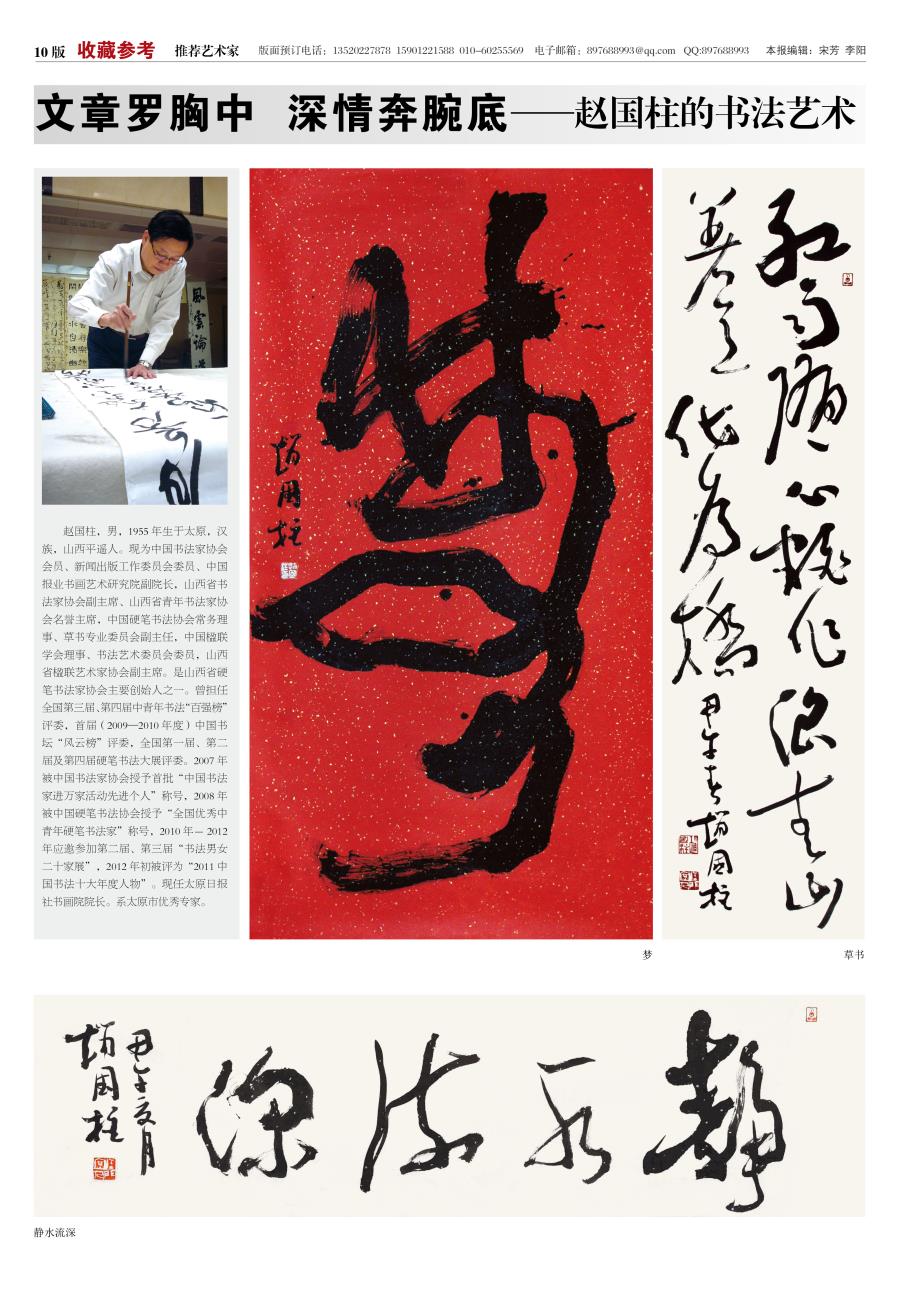 10 版 收藏参考 推荐艺术家 版面预订电话：13520227878 15901221588 010-60255569 电子邮箱：897688993@qq.com QQ:897688993 本报编辑：宋芳 李阳
文章罗胸中 深情奔腕底——赵国柱的书法艺术
風雲論
赵国柱，男，1955 年生于太原，汉
族，山西平遥人。现为中国书法家协会
会员、新闻出版工作委员会委员、中国
报业书画艺术研究院副院长，山西省书
法家协会副主席、山西省青年书法家协
会名誉主席，中国硬笔书法协会常务理
事、草书专业委员会副主任，中国楹联
学会理事、书法艺术委员会委员，山西
省楹联艺术家协会副主席。是山西省硬
笔书法家协会主要创始人之一。曾担任
全国第三届、第四届中青年书法“百强榜”
评委，首届（2009—2010 年度）中国书
坛“风云榜”评委，全国第一届、第二
届及第四届硬笔书法大展评委。2007 年
被中国书法家协会授予首批“中国书法
家进万家活动先进个人”称号，2008 年
被中国硬笔书法协会授予“全国优秀中
青年硬笔书法家”称号，2010 年— 2012
年应邀参加第二届、第三届“书法男女
二十家展”，2012 年初被评为“2011 中
国书法十大年度人物”。现任太原日报
社书画院院长。系太原市优秀专家。
夢
趙国柱
梦
红雨随心翻作浪青山
着意化为橋
甲午春趙国柱
草书
静水流深
甲午夏月
趙国柱
静水流深